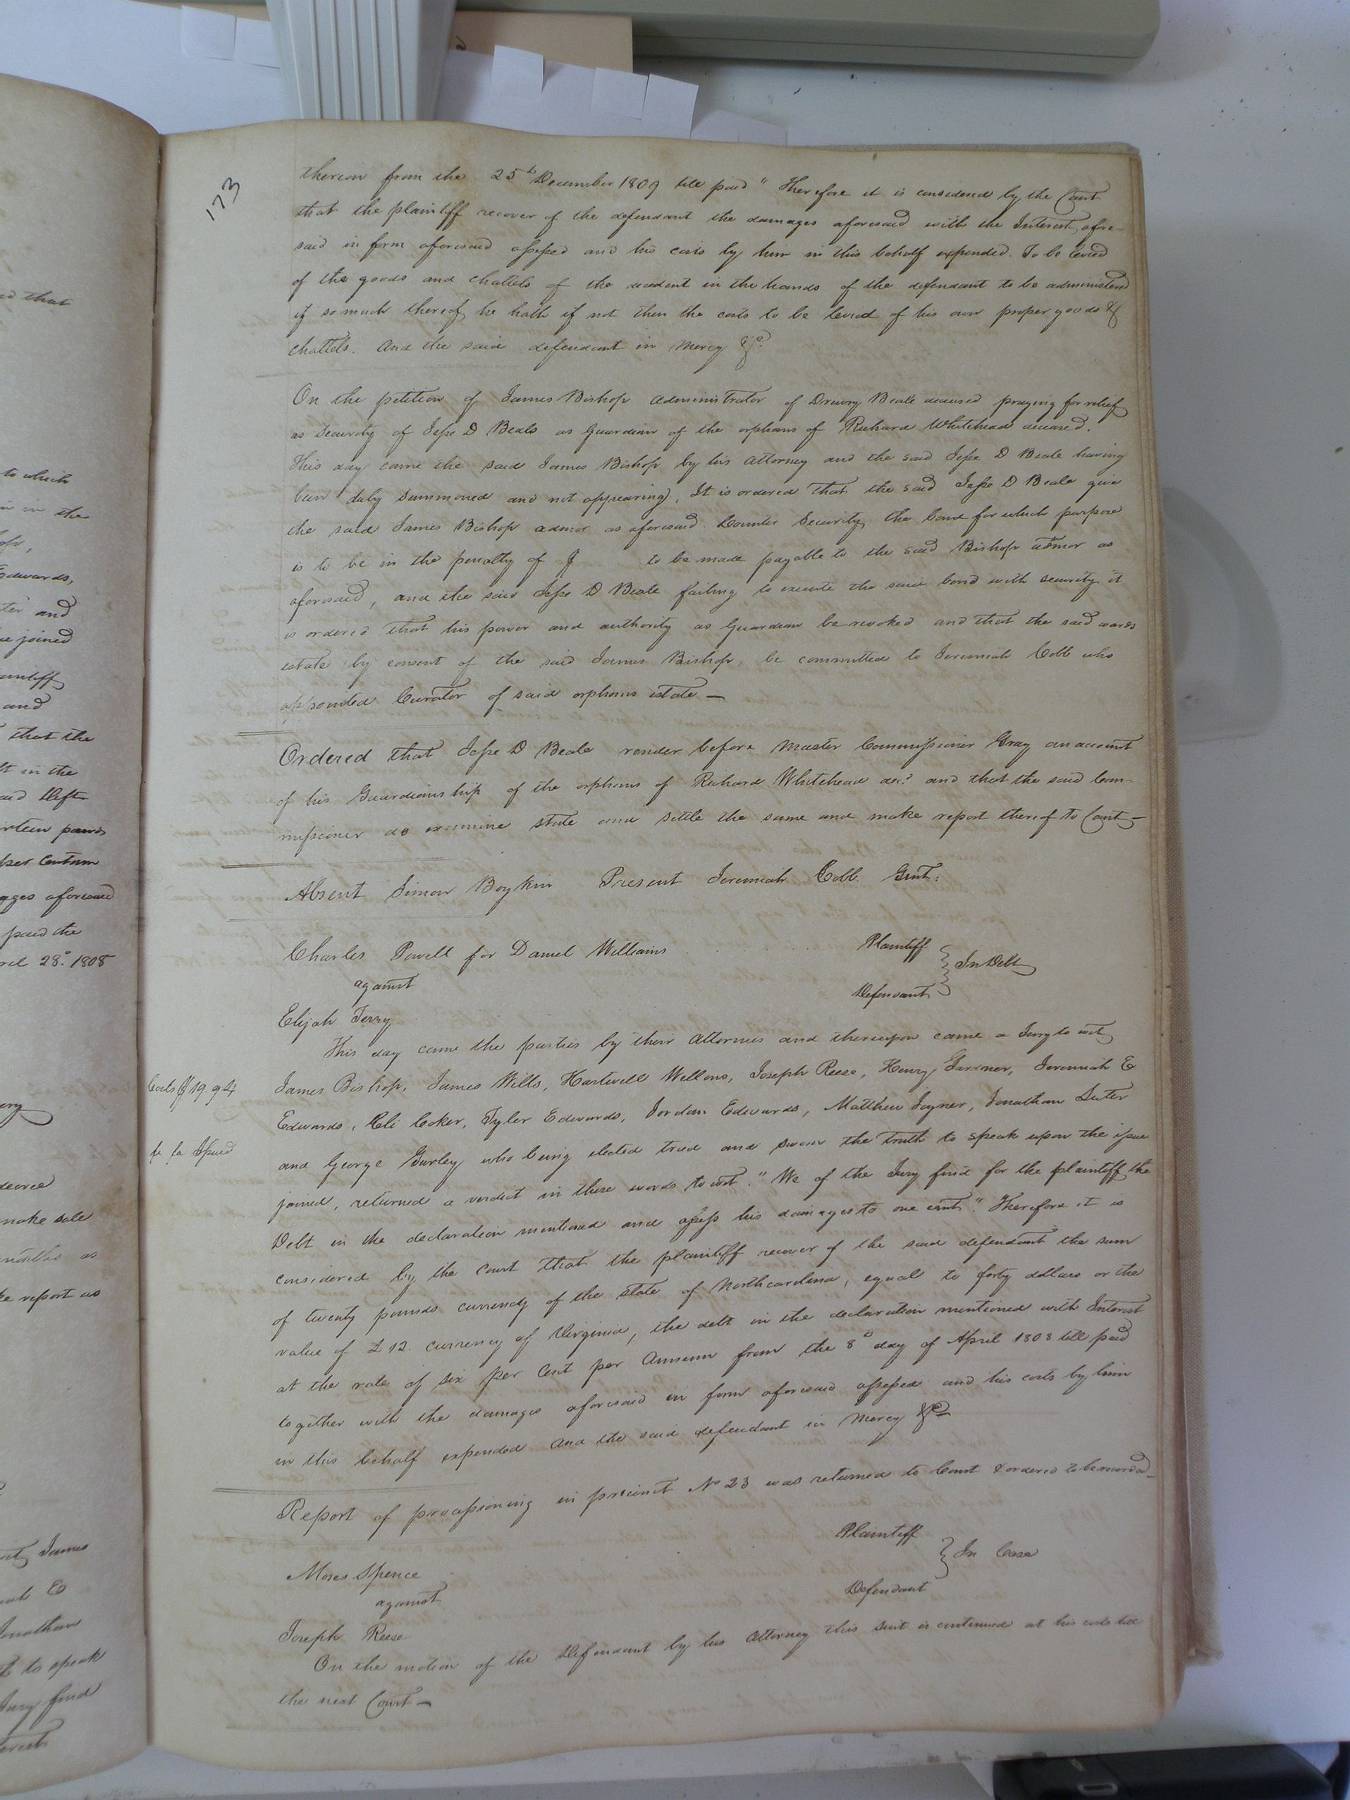 173
thereon from the 25th December 1809 till paid" Therefore it is considered by the Court
that the plaintiff recover of the defendant the damages aforesaid with the Interest afore-
said in form aforesaid assessed and his costs by him in this behalf expended. To be levied
of the goods and chattels of the decedent in the hands of the defendant to be administered
if so much thereof he hath if not then the costs to be levied of his own proper goods &
chattels. And the said defendant in Mercy &c.
On the petition of James Bishop administrator of Drewry Beale deceased praying for relief
as security of Jesse D Beale as Guardian of the orphans of Richard Whitehead deceased.
This day came the said James Bishop by his attorney and the said Jesse D Beale having
been duly summoned and not appearing, It is ordered that the said Jesse D Beale give
the said James Bishop admor as aforesaid Counter Security, the bond for which purpose
is to be in the penalty of $ to be made payable to the said Bishop admor as
aforesaid, and the said Jesse D Beale failing to execute the said bond with security it
is ordered that his power and authority as Guardian be revoked and that the said wards
estate by consent of the said James Bishop, be committed to Jeremiah Cobb who
appointed Curator of said orphans estate —
Ordered that Jesse D Beale render before Master Commissioner Gray an account
of his Guardianship of the orphans of Richard Whitehead decd. and that the said Com-
missioner do examine state and settle the same and make report thereof to Court —
Absent Simon Boykin Present Jeremiah Cobb Gent:
Charles Powell for Daniel Williams Plaintiff
against In Debt
Elijah Terry Defendant
This day came the parties by their Attornies and thereupon came a Jury to wit,
Costs $19.94 James Bishop, James Wills, Hartwell Wellons, Joseph Reese, Henry Gardner, Jeremiah E
Edwards, Eli Coker, Tyler Edwards, Jordan Edwards, Matthew Joyner, Jonathan Suter
fi fa Issued and George Gurley who being elected tried and sworn the truth to speak upon the issue
joined, returned a verdict in these words to wit. "We of the Jury find for the plaintiff the
Debt in the declaration mentioned and assess his damages to one cent" Therefore it is
considered by the Court that the plaintiff recover of the said defendant the sum
of twenty pounds currency of the State of Northcarolina, equal to forty dollars or the
value of £12 currency of Virginia, the debt in the declaration mentioned with Interest
at the rate of six per Cent per Annum from the 8th day of April 1808 till paid
together with the damages aforesaid in form aforesaid assessed and his costs by him
in this behalf expended And the said defendant in Mercy &c
Report of processioning in precinct No 23 was returned to Court & ordered to be recorded
Moses Spence Plaintiff
against In Case
Joseph Reese Defendant
On the motion of the Defendant by his Attorney this suit is continued at his costs till
the next Court —